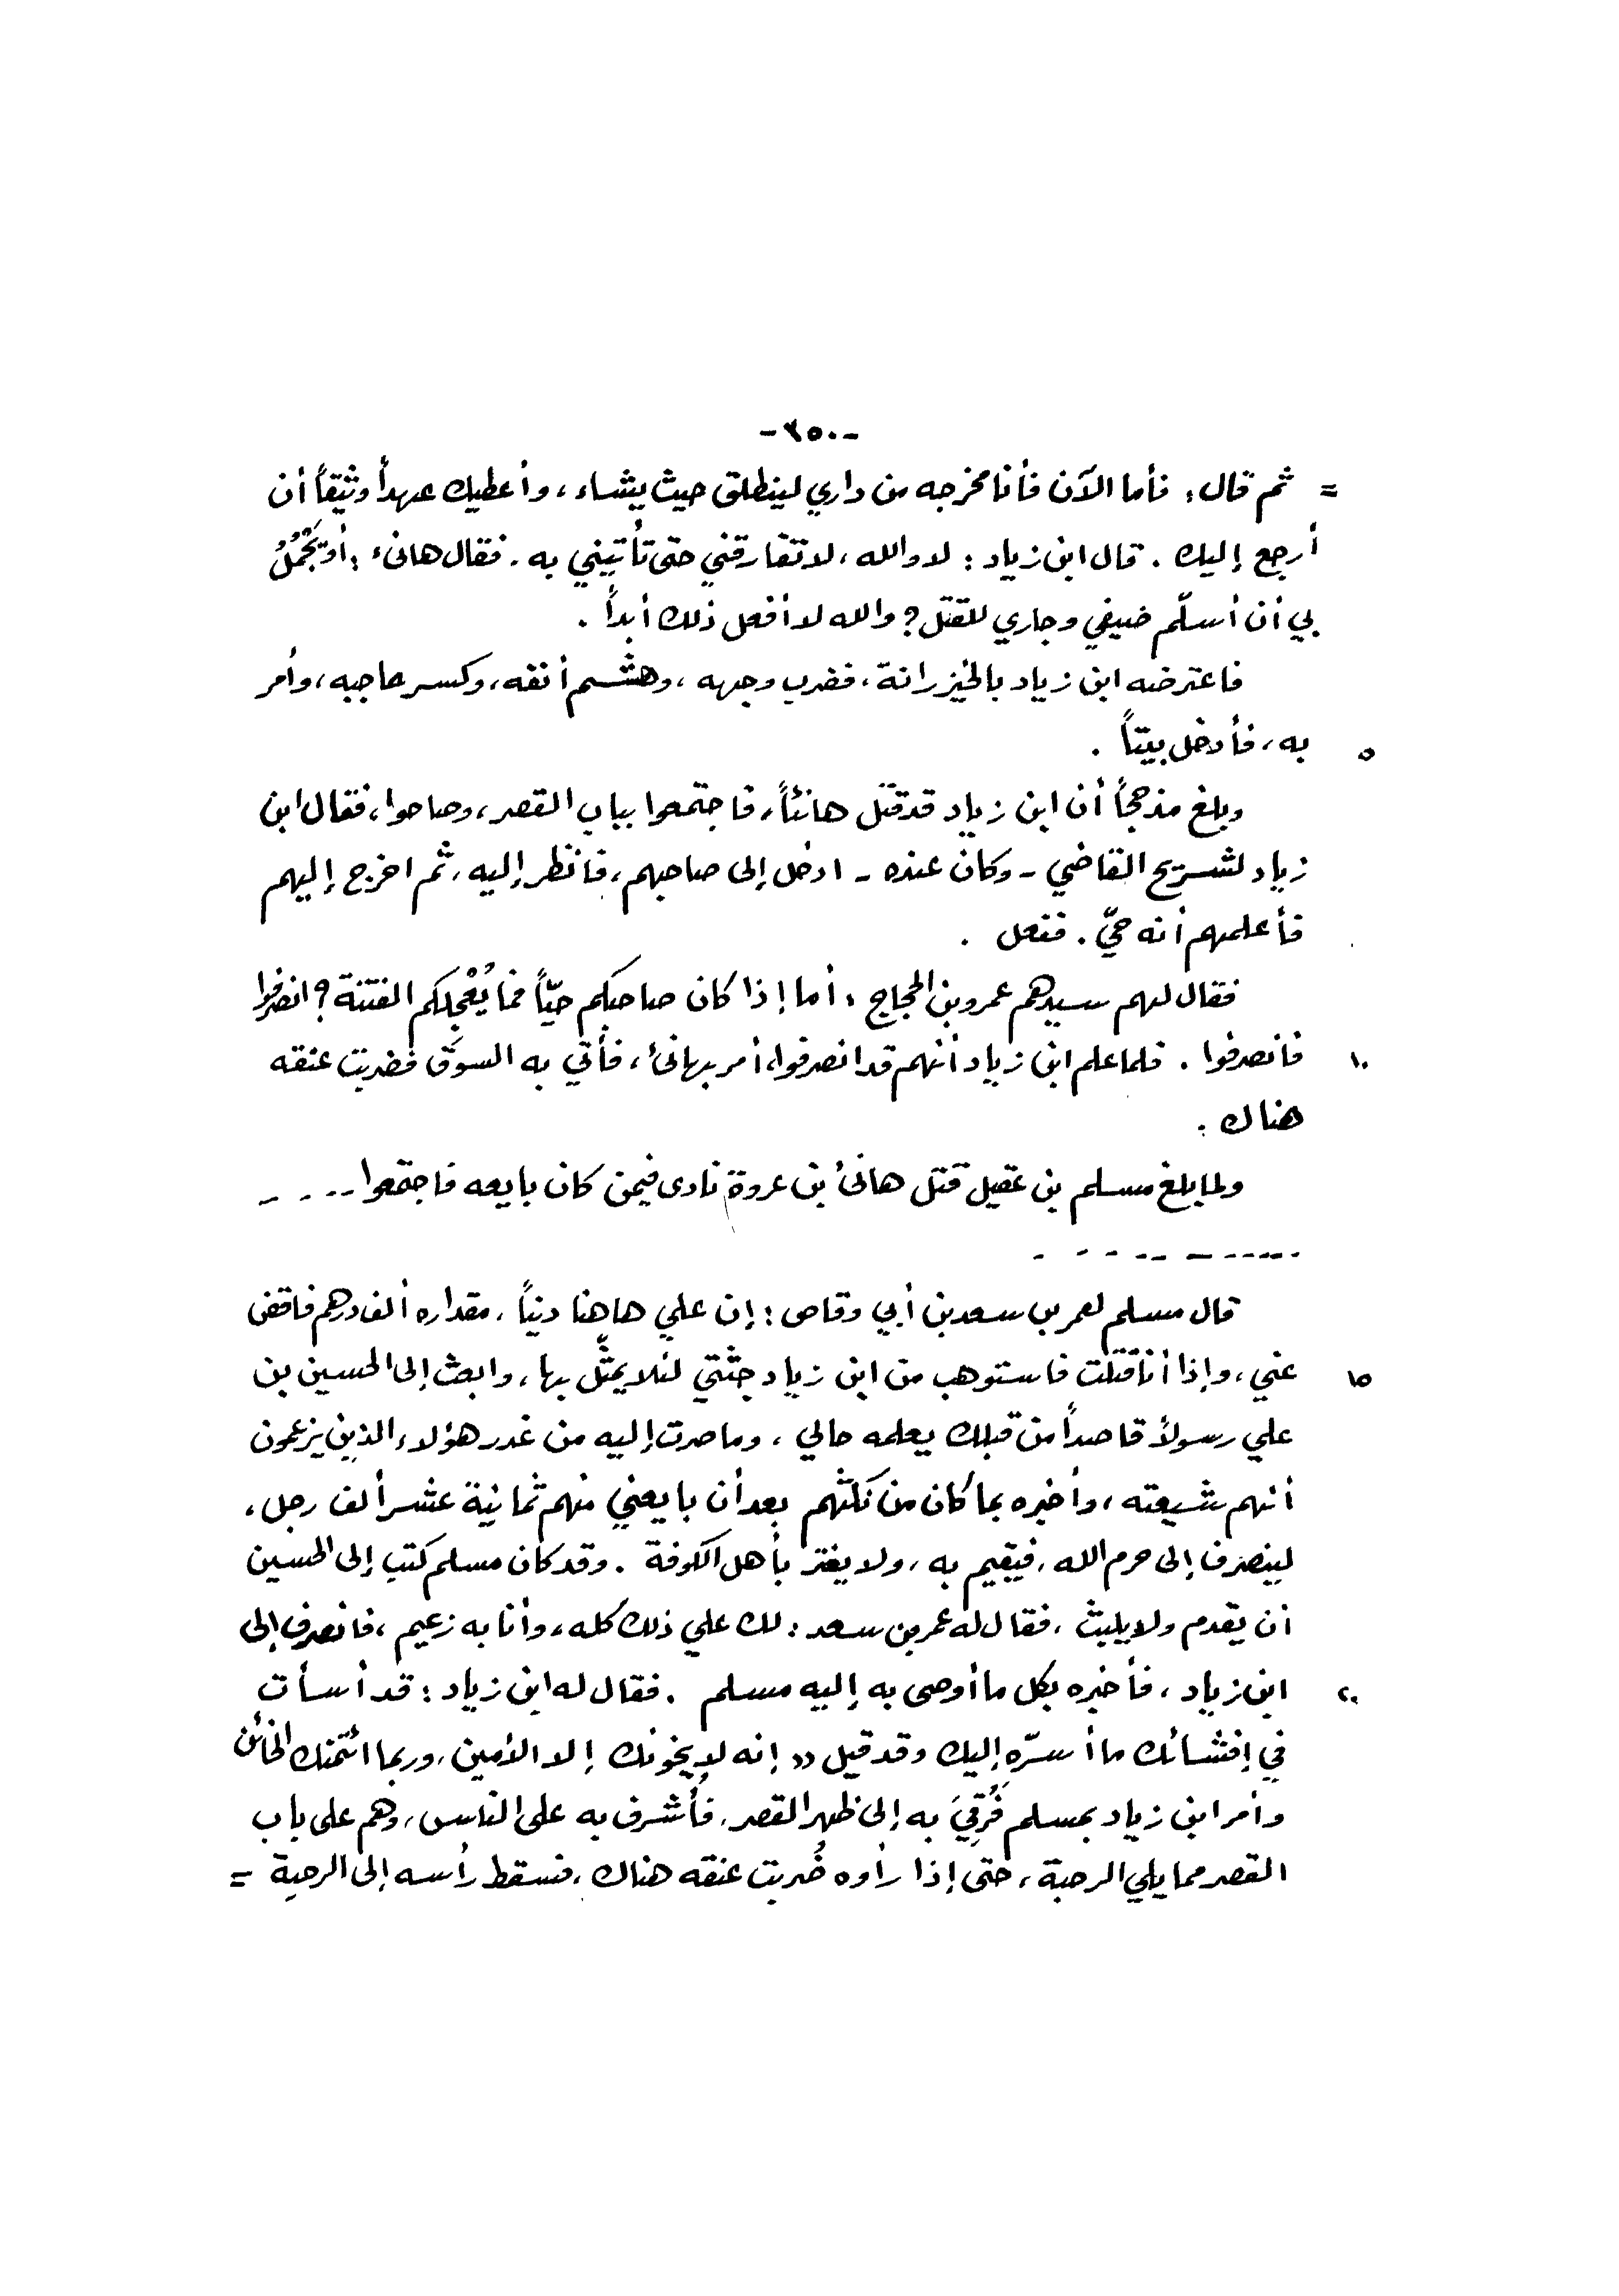 -٣٥٠-
= ثم قال: فأما الآن فأنا مخرجه من داري لينطلق حيث يشاء، وأعطيك عهداً وثيقاً أن
أرجع إليك. قال ابن زياد: لا والله، لا تفارقني حتى تأتيني به. فقال هانىء: أو يَجْمُلُ
بي أن أسلّم ضيفي وجاري للقتل؟ والله لا أفعل ذلك أبداً.
فاعترضه ابن زياد بالخيزرانة، فضرب وجهه، وهشم أنفه، وكسر حاجبه، وأمر
٥ به، فأدخل بيتاً.
وبلغ مذحجاً أن ابن زياد قد قتل هانئاً، فاجتمعوا بباب القصر، وصاحوا، فقال ابن
زياد لشريح القاضي - وكان عنده - ادخل إلى صاحبهم، فانظر إليه، ثم اخرج إليهم
فأعلمهم أنه حيّ. ففعل.
فقال لهم سيدهم عمرو بن الحجاج: أما إذا كان صاحبكم حيّاً فما يُعْجلكم الفتنة؟ انصرفوا
١٠ فانصرفوا. فلما علم ابن زياد أنهم قد انصرفوا، أمر بهانئ، فأتي به السوق فضربت عنقه
هناك.
ولما بلغ مسلم بن عقيل قتل هانئ بن عروة نادى فيمن كان بايعه فاجتمعوا ....
..........
قال مسلم لعمر بن سعد بن أبي وقاص: إن علي هاهنا ديناً، مقداره ألف درهم فاقض
١٥ عني، وإذا أنا قتلت فاستوهب من ابن زياد جثتي لئلا يمثّل بها، وابعث إلى الحسين بن
علي رسولاً قاصداً من قبلك يعلمه حالي، وما صرت إليه من غدر هؤلاء الذين يزعمون
أنهم شيعته، وأخبره بما كان من نكثهم بعد أن بايعني منهم ثمانية عشر ألف رجل،
لينصرف إلى حرم الله، فيقيم به، ولا يغتر بأهل الكوفة. وقد كان مسلم كتب إلى الحسين
أن يقدم ولا يلبث، فقال له عمر بن سعد: لك علي ذلك كله، وأنا به زعيم، فانصرف إلى
٢٠ ابن زياد، فأخبره بكل ما أوصى به إليه مسلم. فقال له ابن زياد: قد أسأت
في إفشائك ما أسرّه إليك وقد قيل «إنه لا يخونك إلا الأمين، وربما ائتمنك الخائن
وأمر ابن زياد بمسلم فَرُقِيَ به إلى ظهر القصر، فأُشرف به على الناس، وهم على باب
القصر مما يلي الرحبة، حتى إذا رأوه ضُربت عنقه هناك، فسقط رأسه إلى الرحبة =